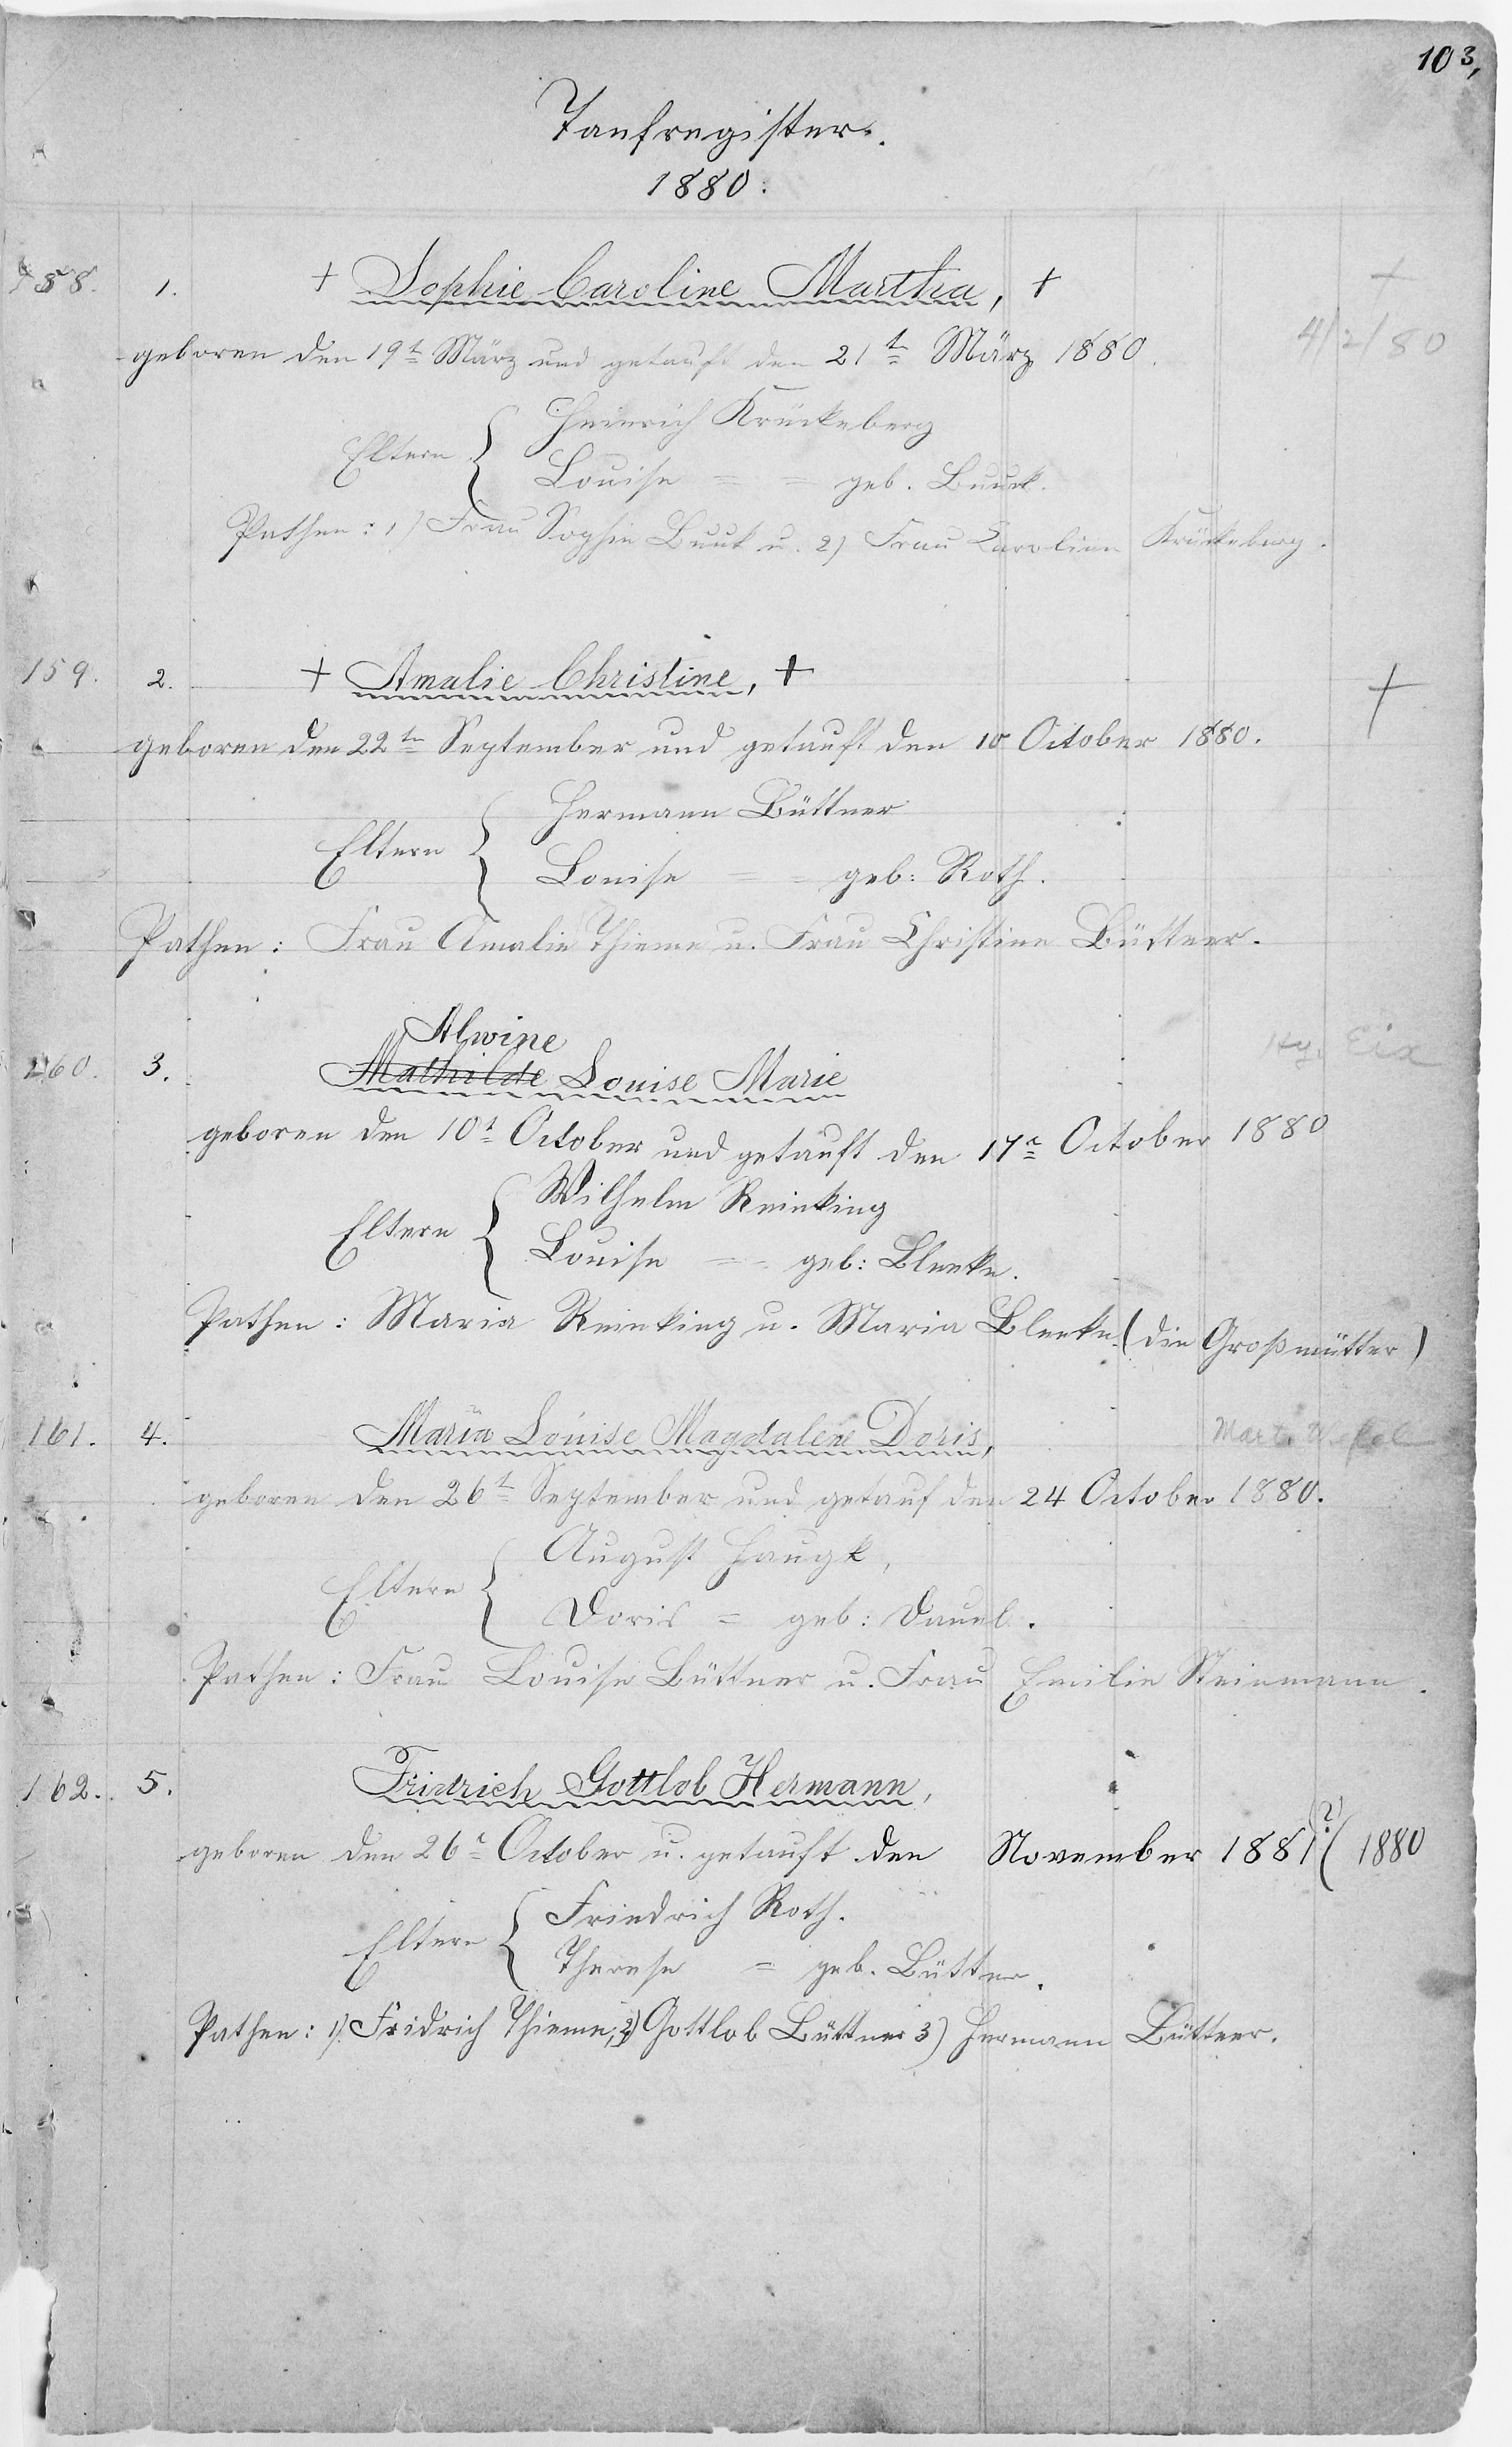 103,
Taufregister.
1880.
158. 1. + Sophie Caroline Martha, + +
geboren den 19t März und getauft den 21t März 1880. 4/2/80
Heinrich Krückeberg
Eltern {
Louise = = geb. Buuck.
Pathen: 1) Frau Sophie Buuk u. 2) Frau Caroline Krückeberg.
159. 2. + Amalie Christine, + +
geboren den 22tn September und getauft den 10 October 1880.
Hermann Büttner
Eltern {
Louise = = geb: Roth.
Pathen: Frau Amalie Thieme u. Frau Christine Büttner.
Alwine
160. 3. Mathilde Louise Marie
geboren den 10t October und getauft den 17t October 1880
Wilhelm Reinking
Eltern {
Louise = = geb: Bleeke.
Pathen: Maria Reinking u. Maria Bleeke (die Großmütter)
161. 4. Maria Louise Magdalene Doris, Mart.
geboren den 26t September und getauf den 24 October 1880.
August Haugk,
Eltern {
Doris = geb: Dauel.
Pathen: Frau Louise Büttner u. Frau Emilie Steinmann.
162. 5. Fridrich Gottlob Hermann,
geboren den 26t October u. getauft den November 1881 (?) ( 1880
Friedrich Roth.
Eltern {
Therese = geb. Bütter.
Pathen: 1) Fridrich Thieme, 2) Gottlob Büttner 3) Hermann Büttner.